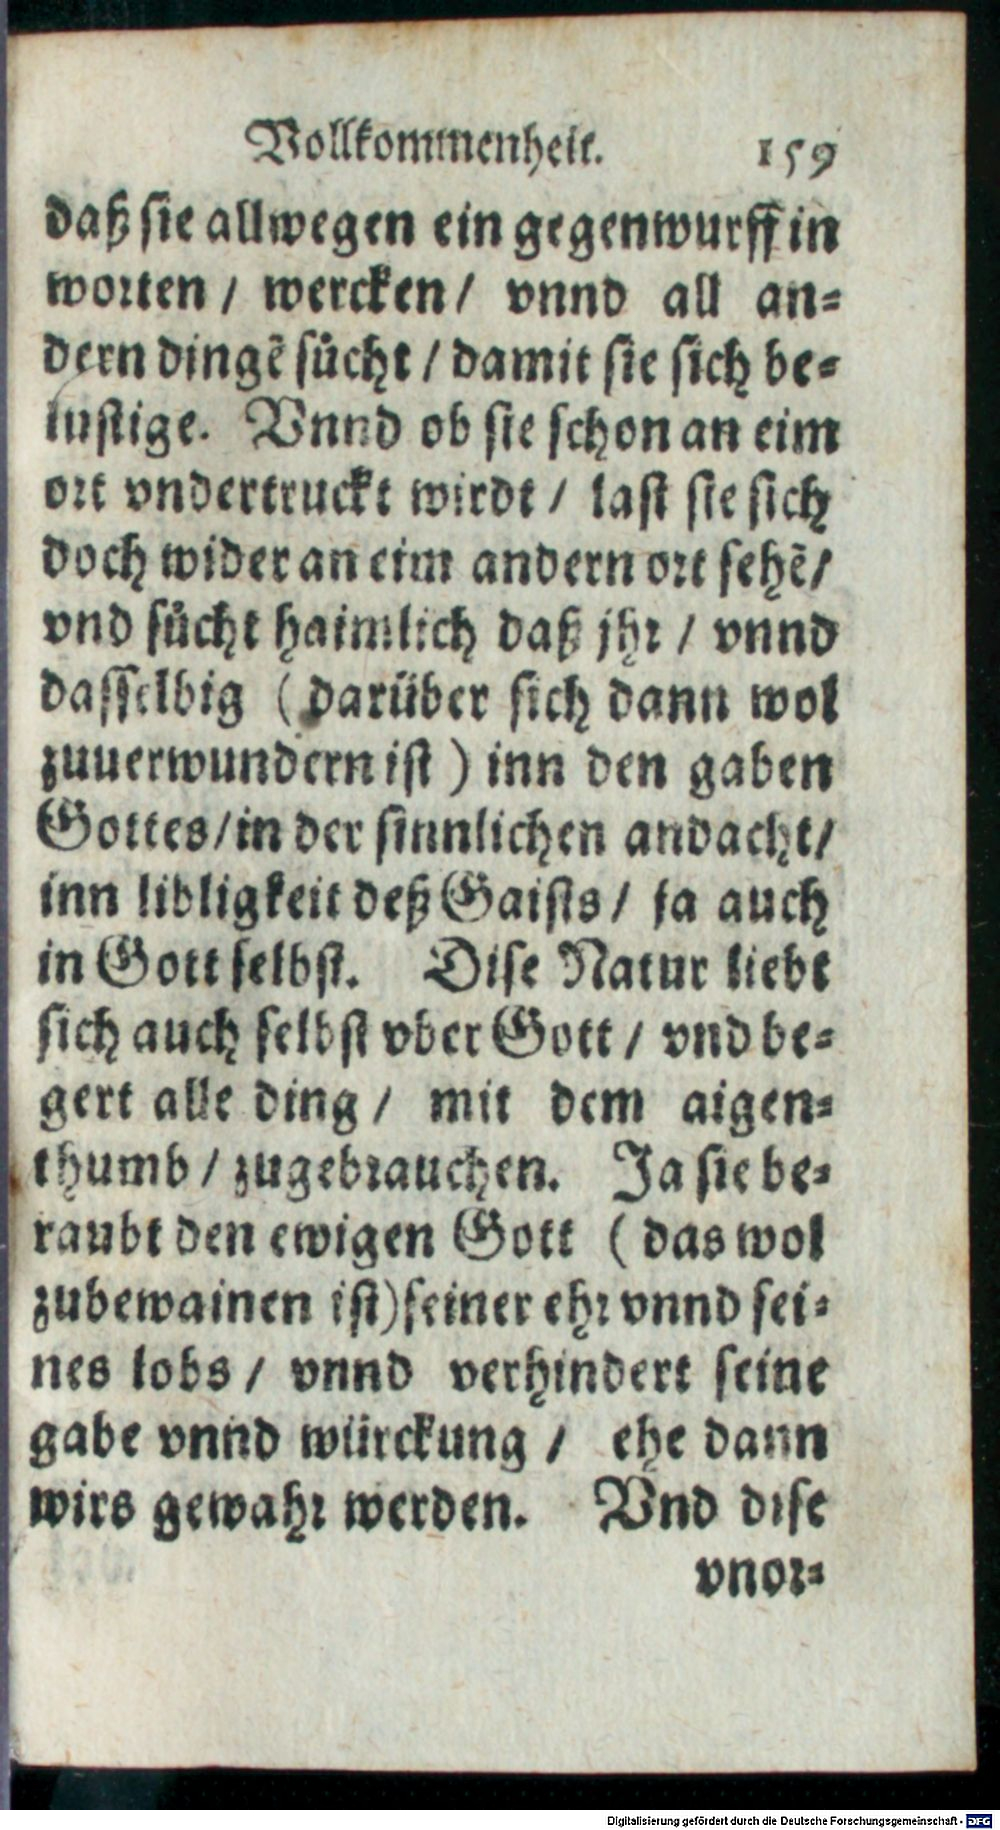 Vollkommenheit. 159
daß sie allwegen ein gegenwurff in
worten / wercken / vnnd all an-
dern dingẽ sůcht / damit sie sich be-
lustige. Vnnd ob sie schon an eim
ort vndertruckt wirdt / last sie sich
doch wider an eim andern ort sehẽ /
vnd sůcht haimlich daß jhr / vnnd
dasselbig ( darüber sich dann wol
zuuerwundern ist ) inn den gaben
Gottes / in der sinnlichen andacht /
inn libligkeit deß Gaists / ja auch
in Gott selbst. Dise Natur liebt
sich auch selbst vber Gott / vnd be-
gert alle ding / mit dem aigen-
thumb / zugebrauchen. Ja sie be-
raubt den ewigen Gott ( das wol
zubewainen ist) seiner ehr vnnd sei-
nes lobs / vnnd verhindert seine
gabe vnnd würckung / ehe dann
wirs gewahr werden. Vnd dise
vnor-
Digitalisierung gefördert durch die Deutsche Forschungsgemeinschaft - DFG